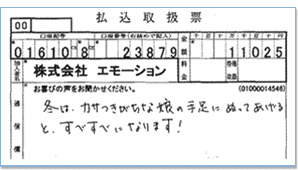 払込取扱票
00
口座記号 口座番号(右詰めで記入) 金額 千 百 十 万 千 百 十 円
01610 8 23879 11025
加入者名 株式会社 エモーション 料金
通信欄
お喜びの声をお聞かせください。 (01000014546)
冬は、カサつきがちな娘の手足にぬってあげる
と、すべすべになります!